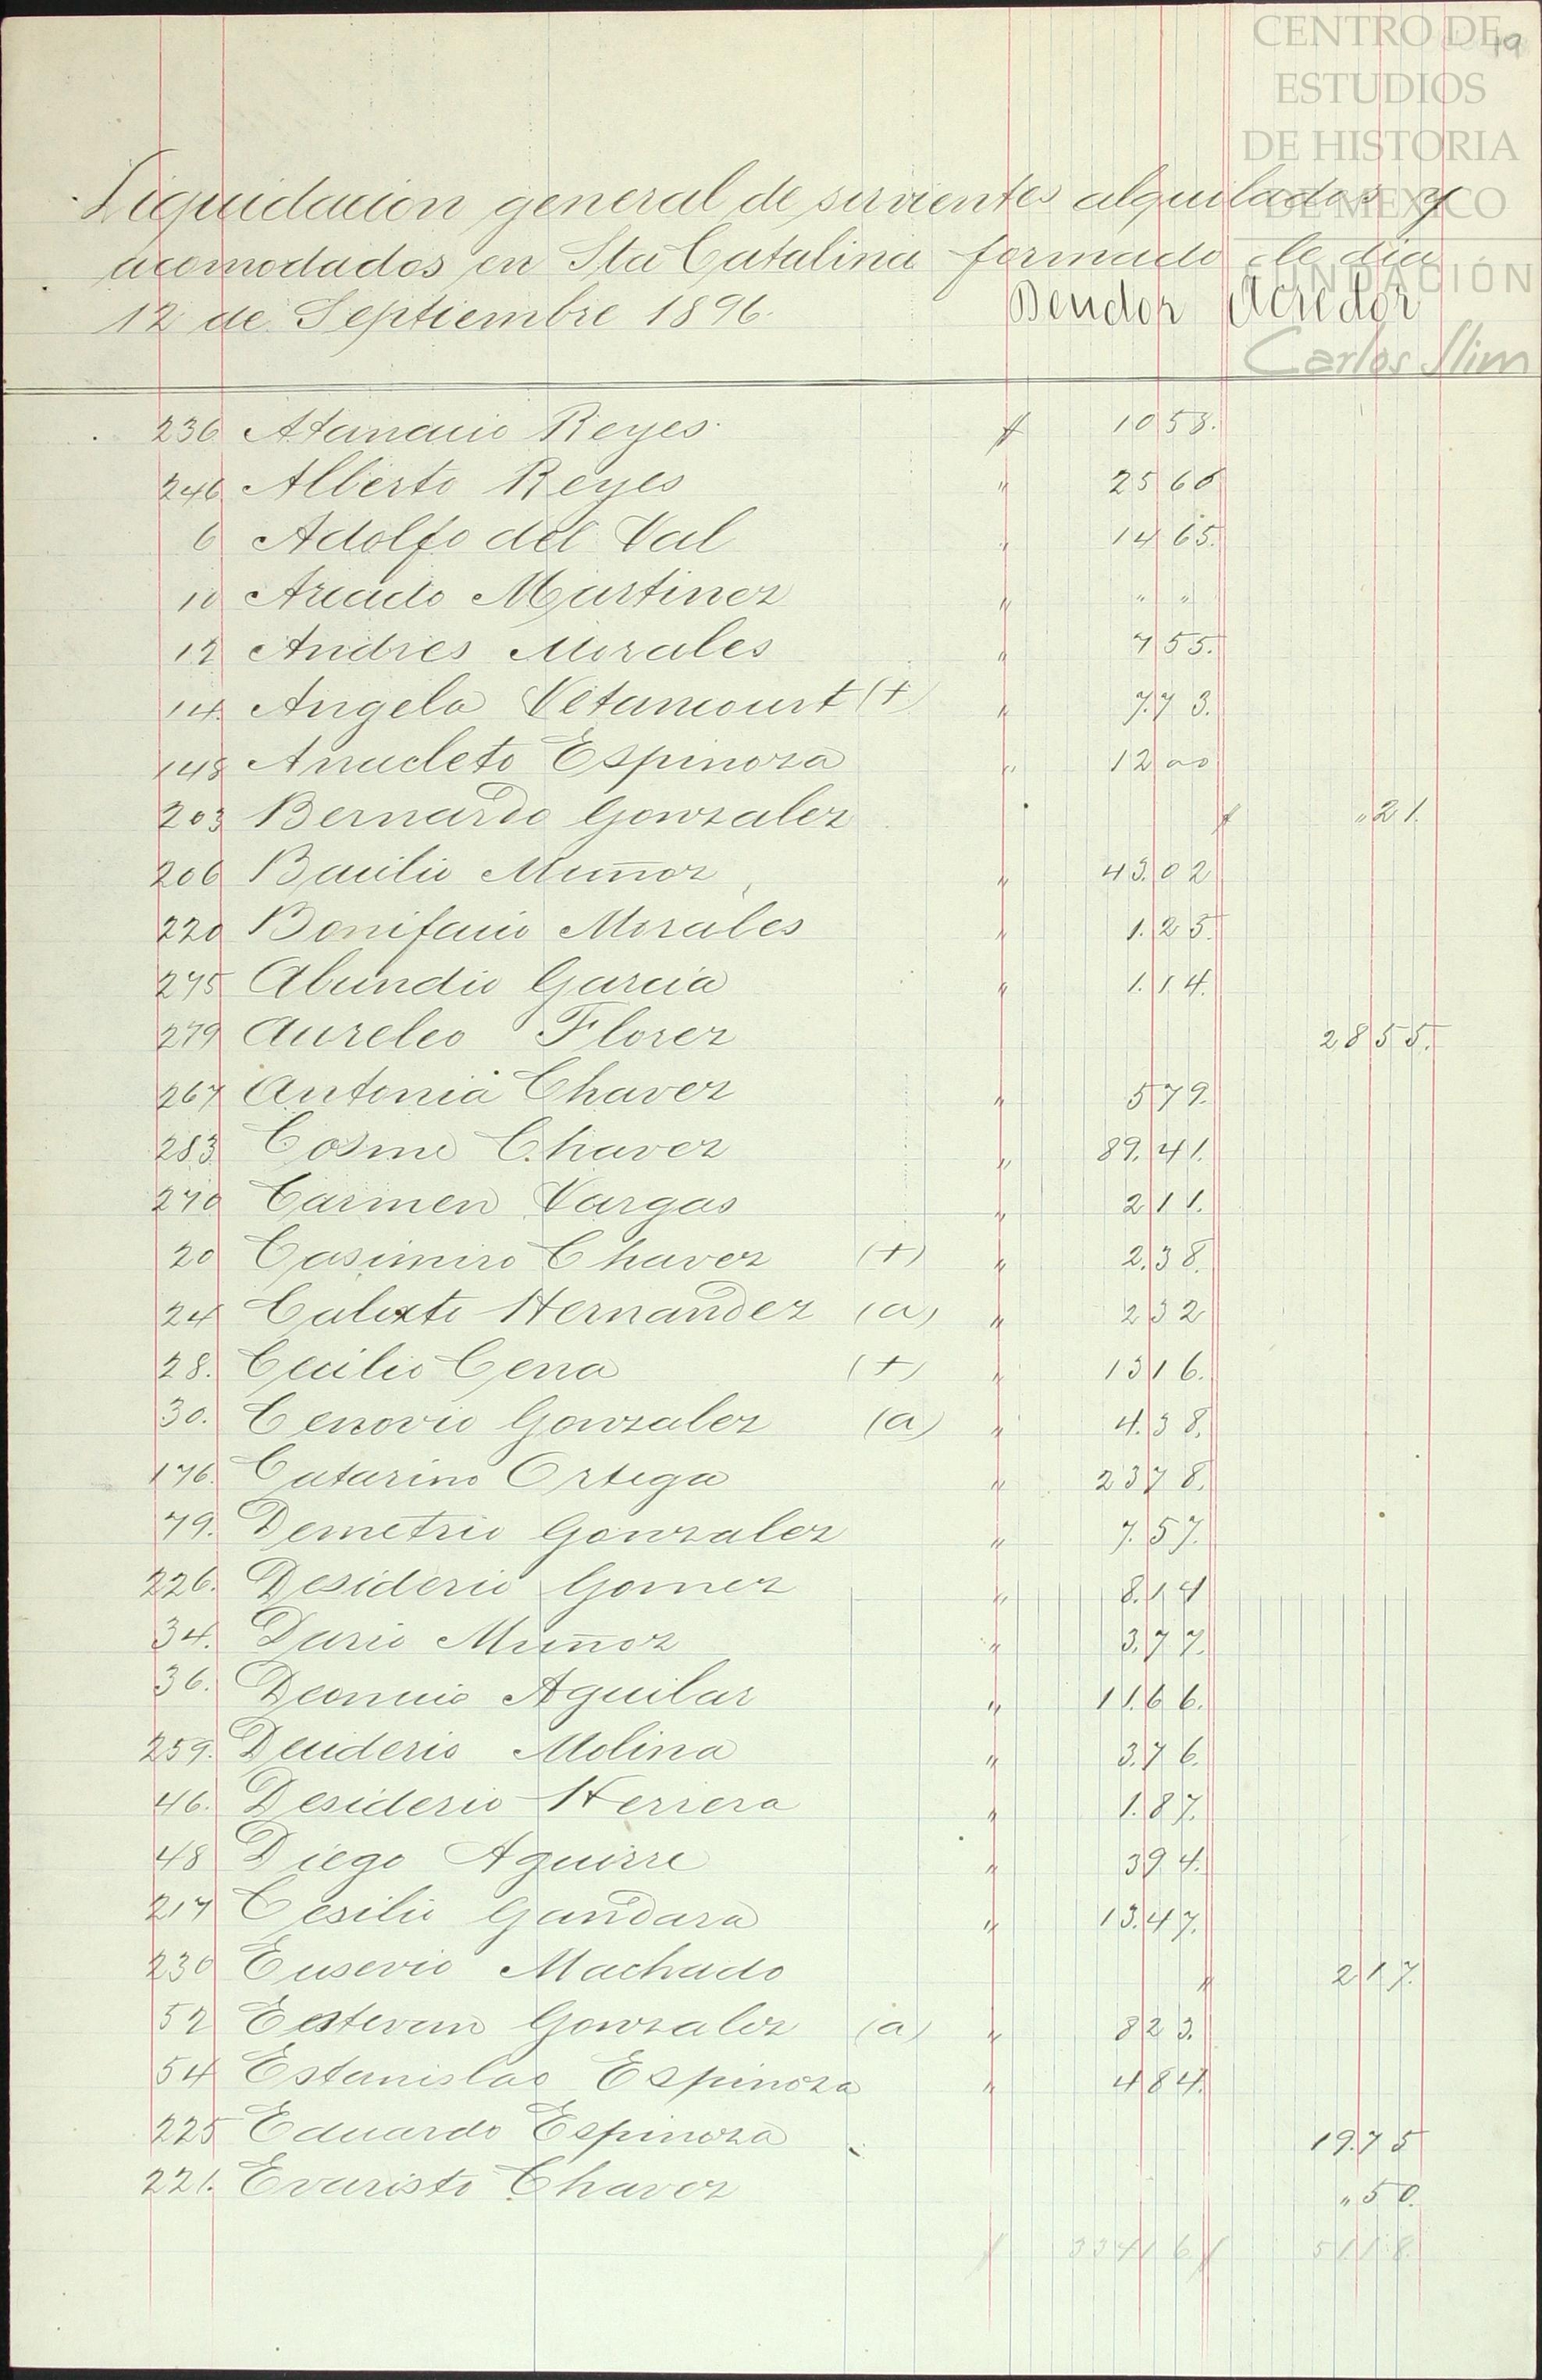 CENTRO DE
ESTUDIOS
DE HISTORIA
DE MÉXICO
FUNDACIÓN
Carlos Slim
19
Liquidacion general de sirvientes alquilados y
acomodados en Sta Catalina formado el dia
12 de Septiembre 1896. Deudor Acredor
236 Atanacio Reyes $ 10 58.
246 Alberto Reyes " 25 60
6 Adolfo del Val " 14 65.
10 Arcadio Martinez " " "
12 Andres Morales " 7 55.
14. Angela Vetancourt (+) " 7.73.
148 Anacleto Espinoza " 12 00
203 Bernardo Gonzalez $ " 21.
206 Bacilio Muñoz " 43.02
220 Bonifacio Morales " 1.25.
275 Abundio Garcia " 1.14.
279 Aureleo Florez 28 55.
267 Antonia Chavez " 5 79.
283 Cosme Chavez " 89.41.
270 Carmen Vargas " 2 11.
20 Casimiro Chavez (+) " 2.38.
24 Calixto Hernandez (a) " 2 32
28. Cecilio Cerra (+) " 13 16.
30. Cenovio Gonzalez (a) " 4.38.
176. Catarino Ortega " 23 78.
79. Demetrio Gonzalez " 7.57.
226. Desiderio Gomez " 8.14
34. Dario Muñoz " 3.77.
36. Deonicio Aguilar " 11.66.
259. Deciderio Molina " 3.76.
46. Desiderio Herrera " 1.87.
48 Diego Aguirre " 3 94.
217 Cesilio Gandara " 13.47.
230 Eusevio Machado " 2 17.
52 Estevan Gonzalez (a) " 8 23.
54 Estanislao Espinoza " 4 84.
225 Eduardo Espinoza 19.75
221. Evaristo Chavez " 50.
$ 334 16 $ 51.18.